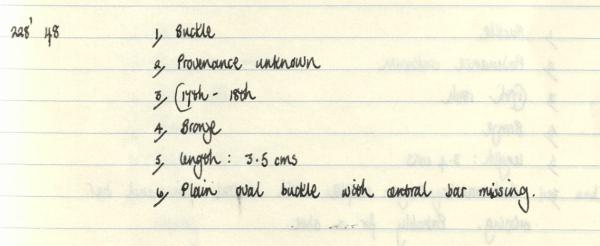 228' 48 1, Buckle
2, Provenance unknown
3, (17th - 18th
4, Bronze
5, length : 3.5 cms
6, Plain oval buckle with central bar missing.